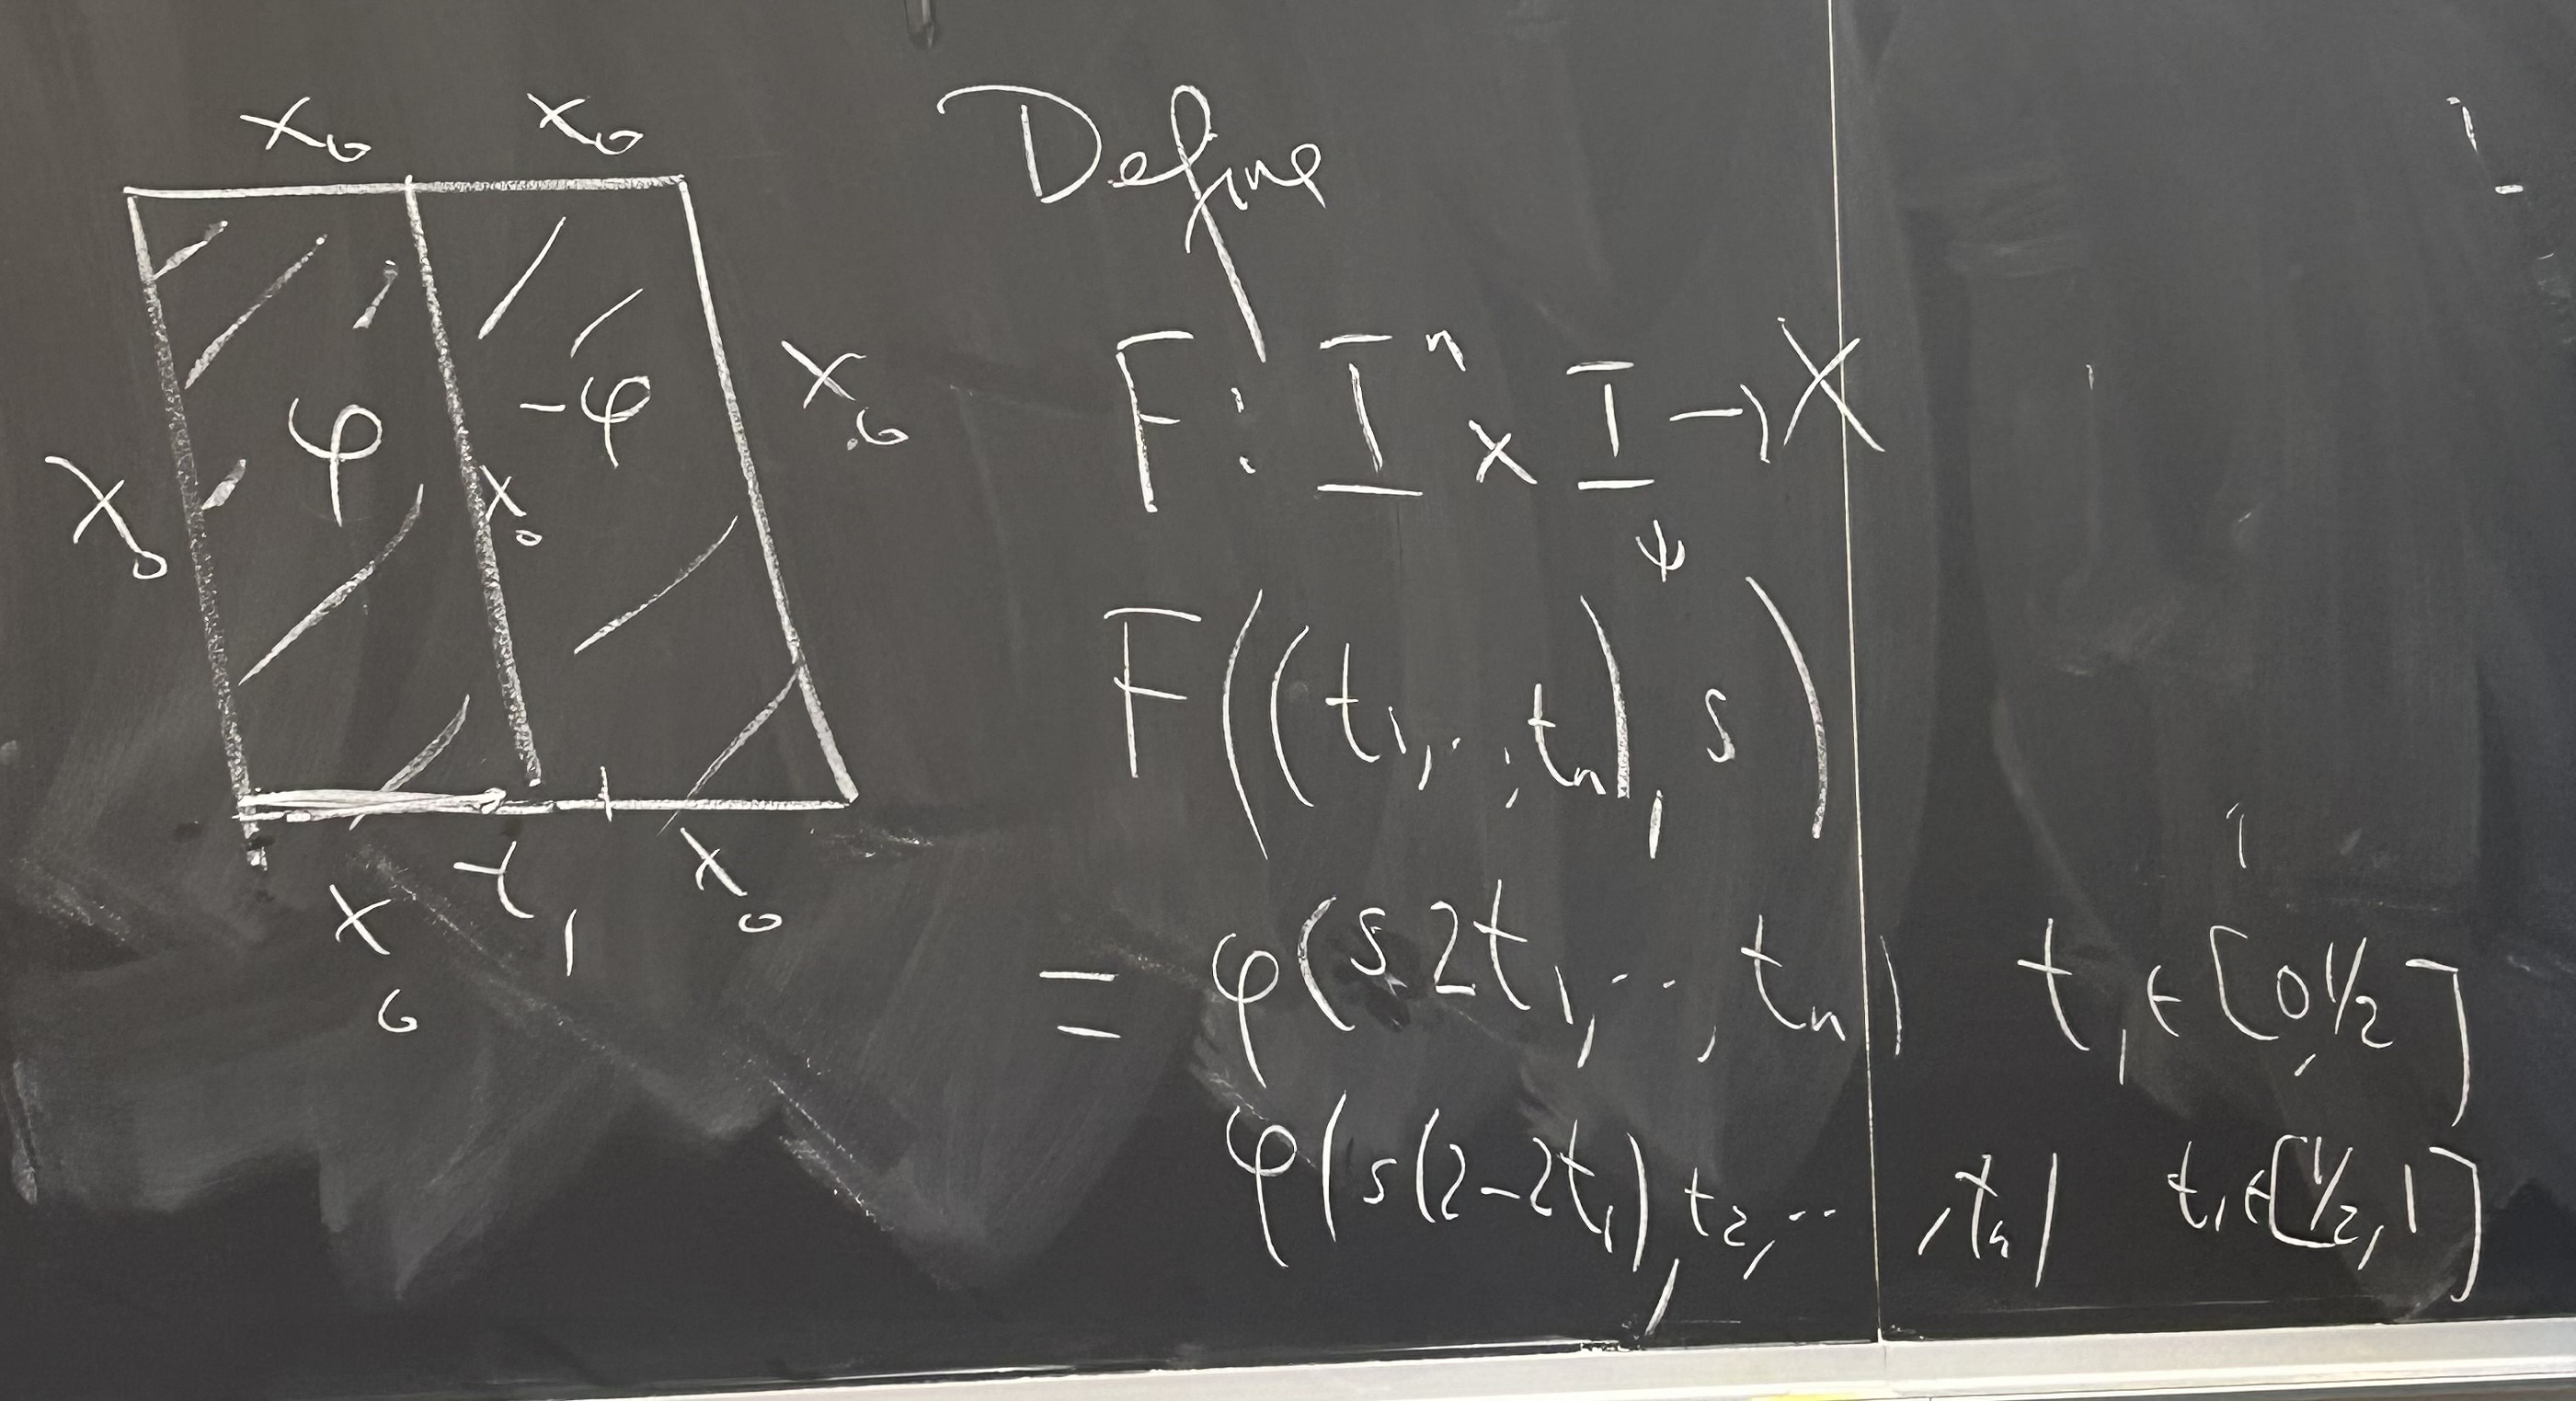 x₀ x₀
φ -φ
x₀ x₀ x₀
x₀ t₁ x₀
Define
F: Iⁿ × I → X
ψ
F((t₁, .., tₙ), s)
= φ(s2t₁, .., tₙ) t₁ ∈ [0, 1/2]
φ(s(2-2t₁), t₂, .., tₙ) t₁ ∈ [1/2, 1]